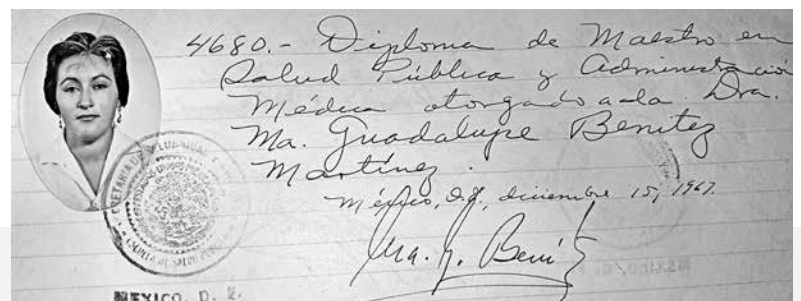 4680.- Diploma de Maestro en
Salud Pública y Administración
Médica otorgado a la Dra.
Ma. Guadalupe Benítez
Martínez.
México, D.F., diciembre 15, 1967.
Ma. G. Benítez
ESCUELA DE SALUD
MEXICO, D. F.